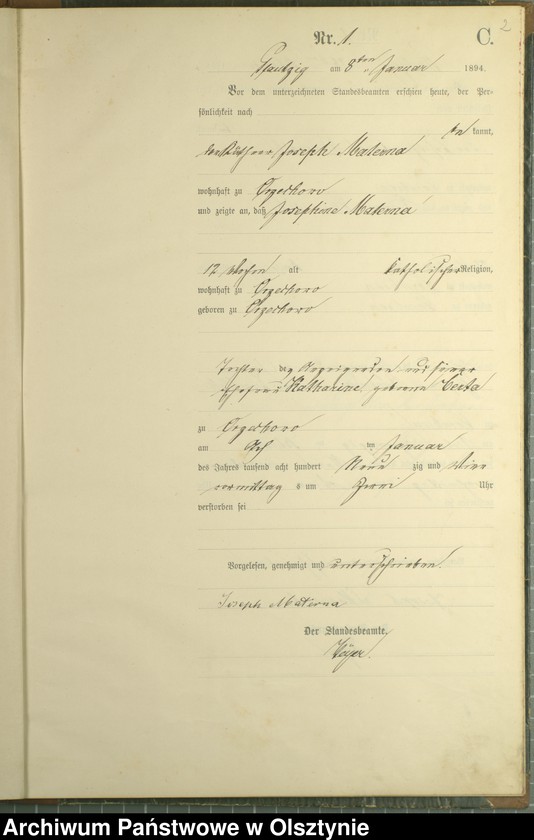 2
Nr. 1. C.
am 8ten Januar 1894.
Vor dem unterzeichneten Standesbeamten erschien heute, der Per-
sönlichkeit nach
be kannt,
Joseph Materna
wohnhaft zu Orzechowo
und zeigte an, daß Josephine Materna
17 Wochen alt katholischer Religion,
wohnhaft zu Orzechowo
geboren zu Orzechowo
Tochter des Anzeigenden und seiner
Ehefrau Katharine geborene Certa
zu Orzechowo
am ten Januar
des Jahres tausend acht hundert Neun zig und Vier
vormittag s um Uhr
verstorben sei
Vorgelesen, genehmigt und unterschrieben.
Joseph Materna
Der Standesbeamte.
Archiwum Państwowe w Olsztynie